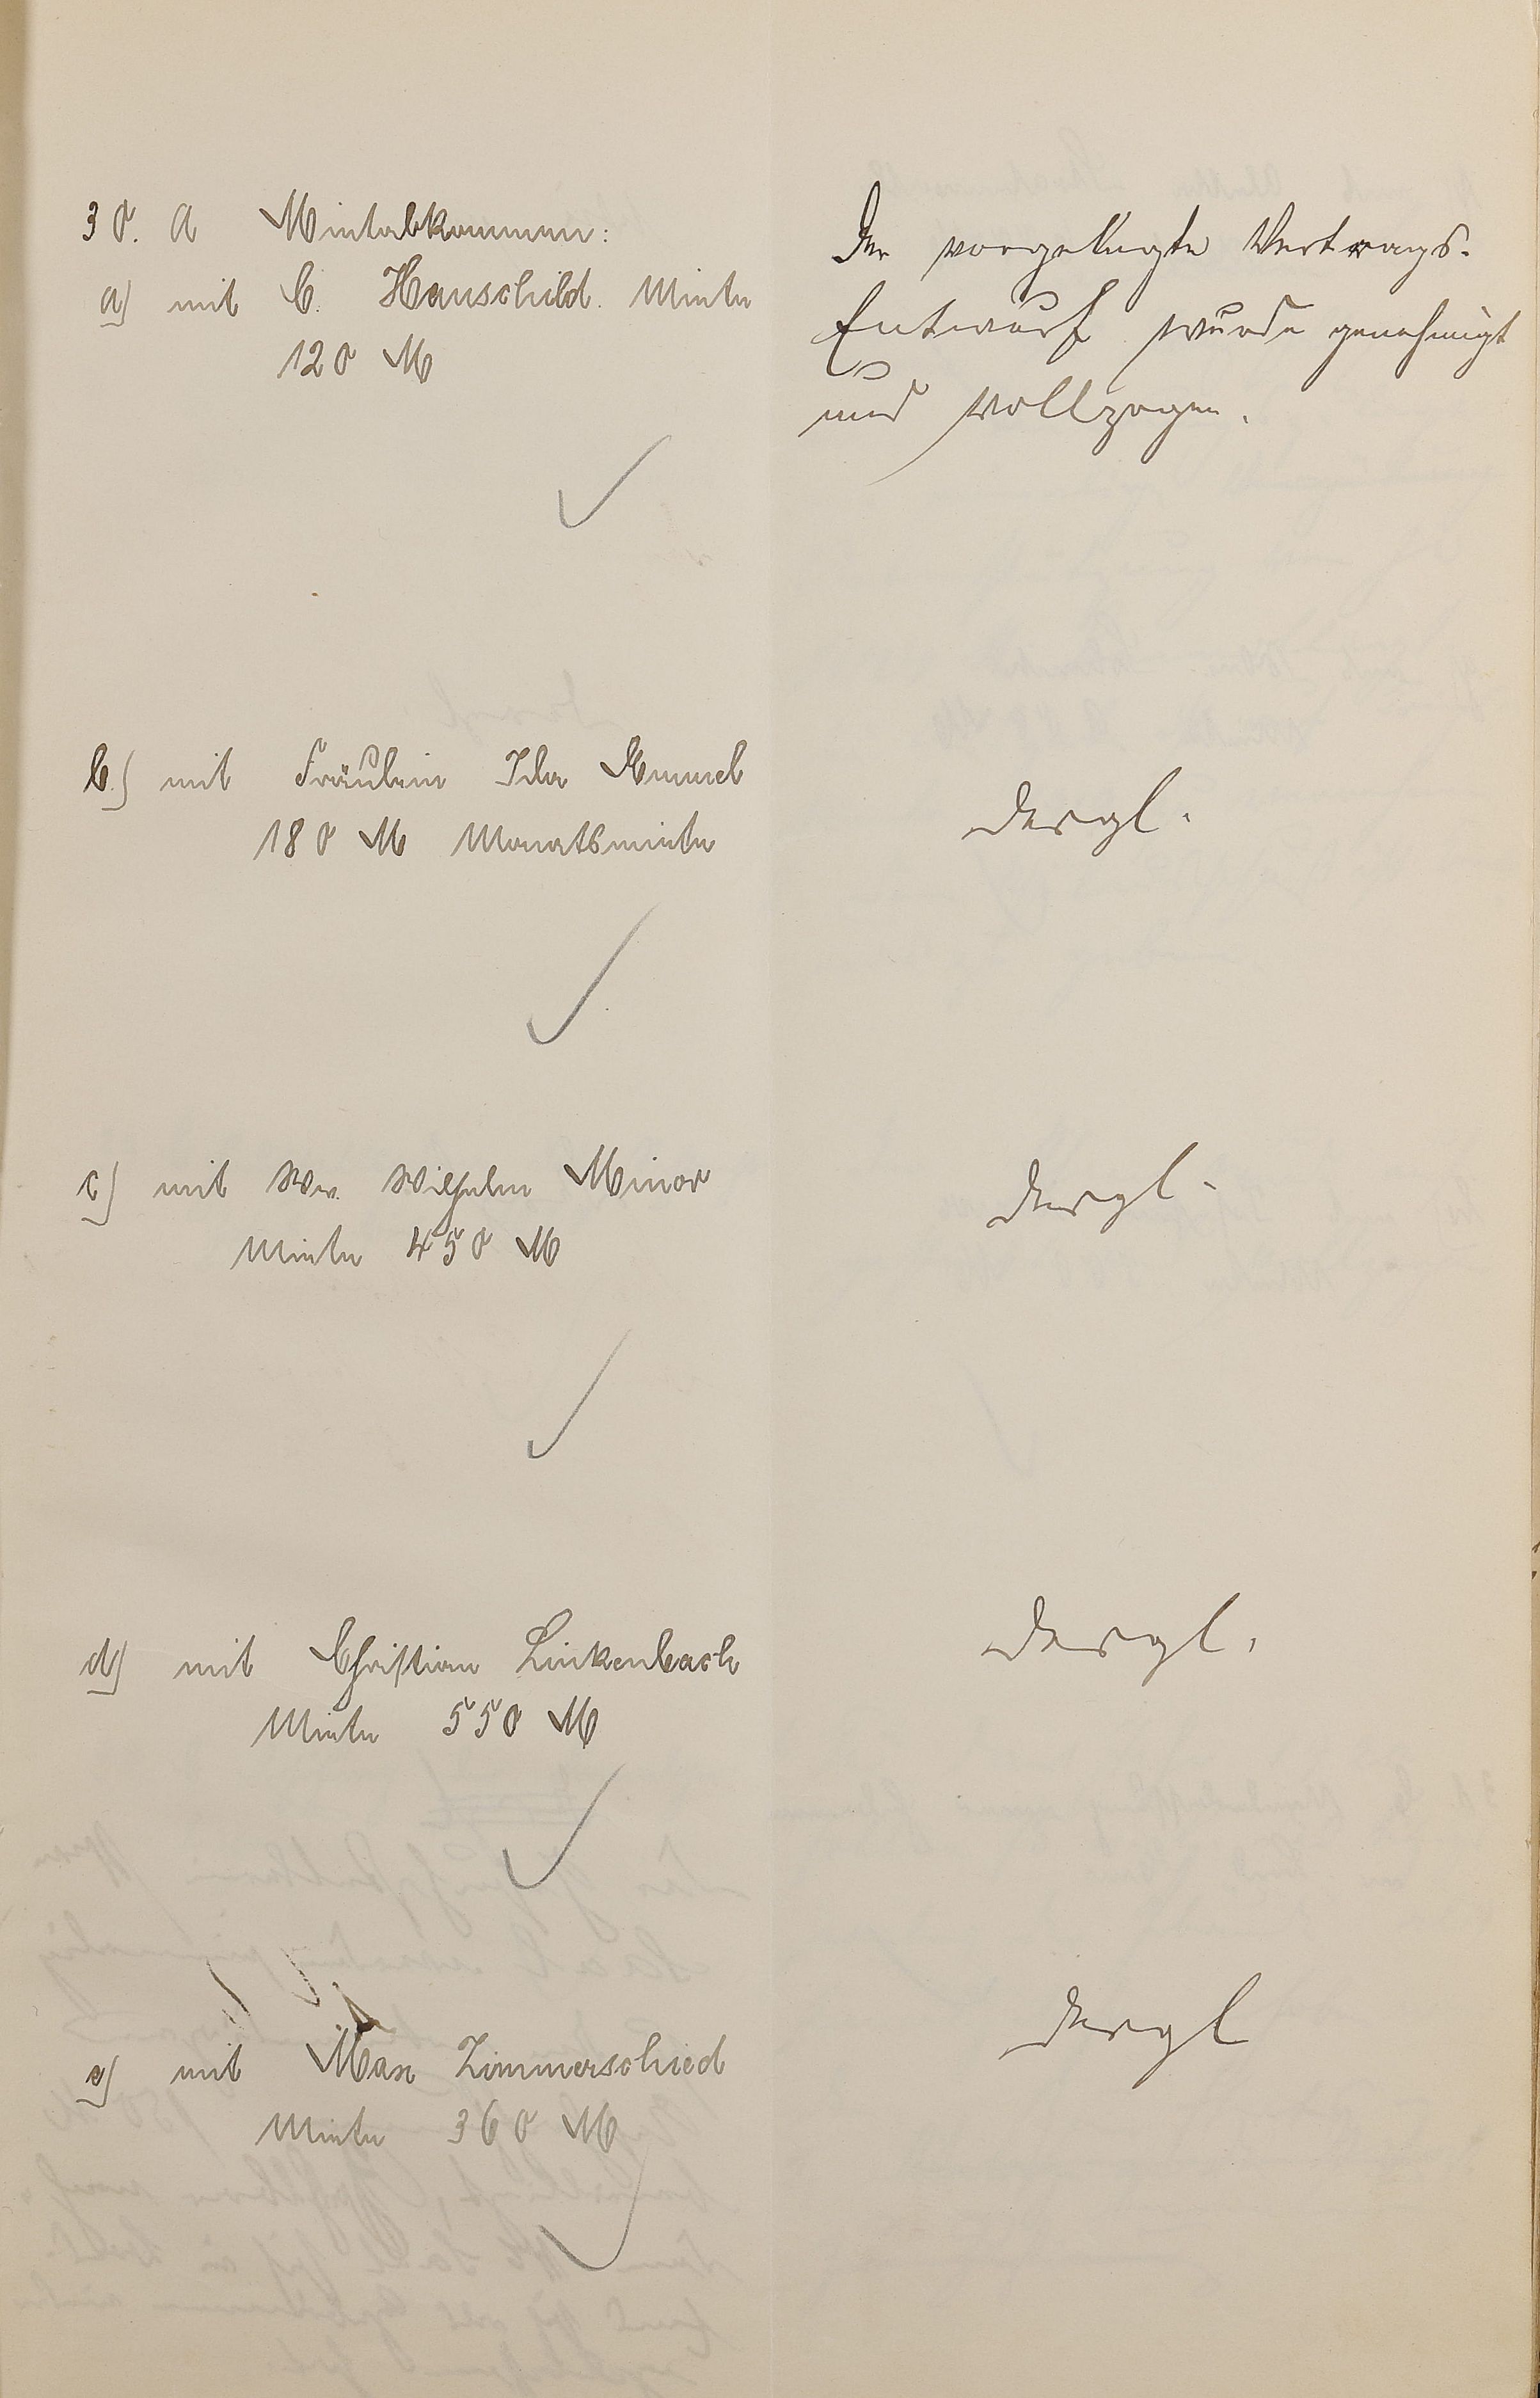 30. A Mietabkommen:
a) mit C. Hauschild. Miete
120 M
Der vorgelegte Vertrags-
Entwurf wurde genehmigt
und vollzogen.
b) mit Fräulein Ida Emmel
180 M Monatsmiete
dergl.
c) mit Ww. Wilhelm Minor
Miete 450 M
dergl.
d) mit Christian Linkenbach
Miete 550 M
dergl.
e) mit Max Zimmerschied
Miete 360 M
dergl